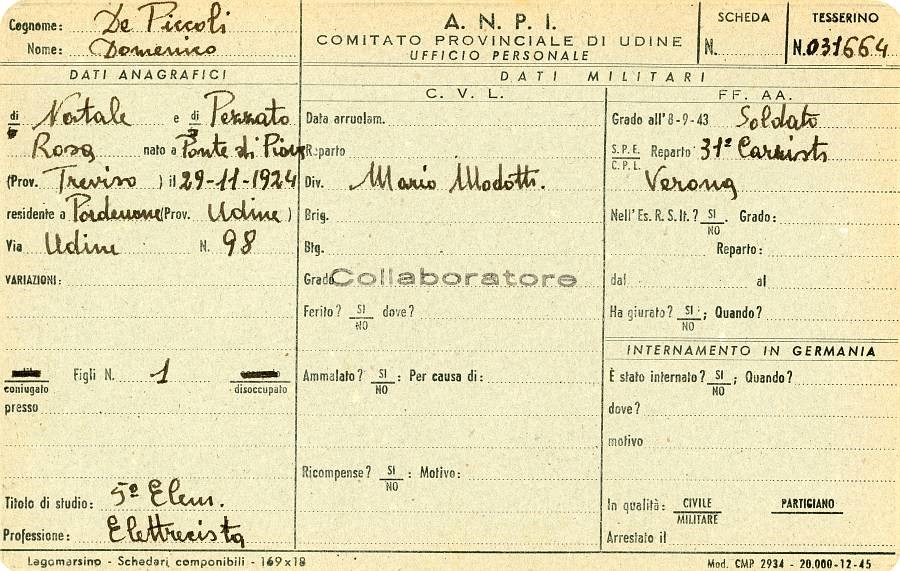 Cognome: De Piccoli
Nome: Domenico
A. N. P. I.
COMITATO PROVINCIALE DI UDINE
UFFICIO PERSONALE
SCHEDA
N.
TESSERINO
N. 031664
DATI ANAGRAFICI
di Natale e di Pezzato
Rosa nato a Ponte di Piave
(Prov. Treviso) il 29-11-1924
residente a Pordenone (Prov. Udine)
Via Udine N. 98
VARIAZIONI:
coniugato Figli N. 1 disoccupato
presso
Titolo di studio: 5ª Elem.
Professione: Elettrecista
DATI MILITARI
C. V. L.
Data arruolam.
Reparto
Div. Mario Modotti.
Brig.
Btg.
Grado Collaboratore
Ferito? SI NO dove?
Ammalato? SI NO : Per causa di:
Ricompense? SI NO : Motivo:
FF. AA.
Grado all'8-9-43 Soldato
S.P.E. C.P.L. Reparto 31º Carristi
Verona
Nell'Es. R. S. It.? SI NO . Grado:
Reparto:
dal al
Ha giurato? SI NO ; Quando?
INTERNAMENTO IN GERMANIA
È stato internato? SI NO ; Quando?
dove?
motivo
In qualità: CIVILE MILITARE PARTIGIANO
Arrestato il
Lagomarsino - Schedari componibili - 169x18
Mod. CMP 2934 - 20.000-12-45